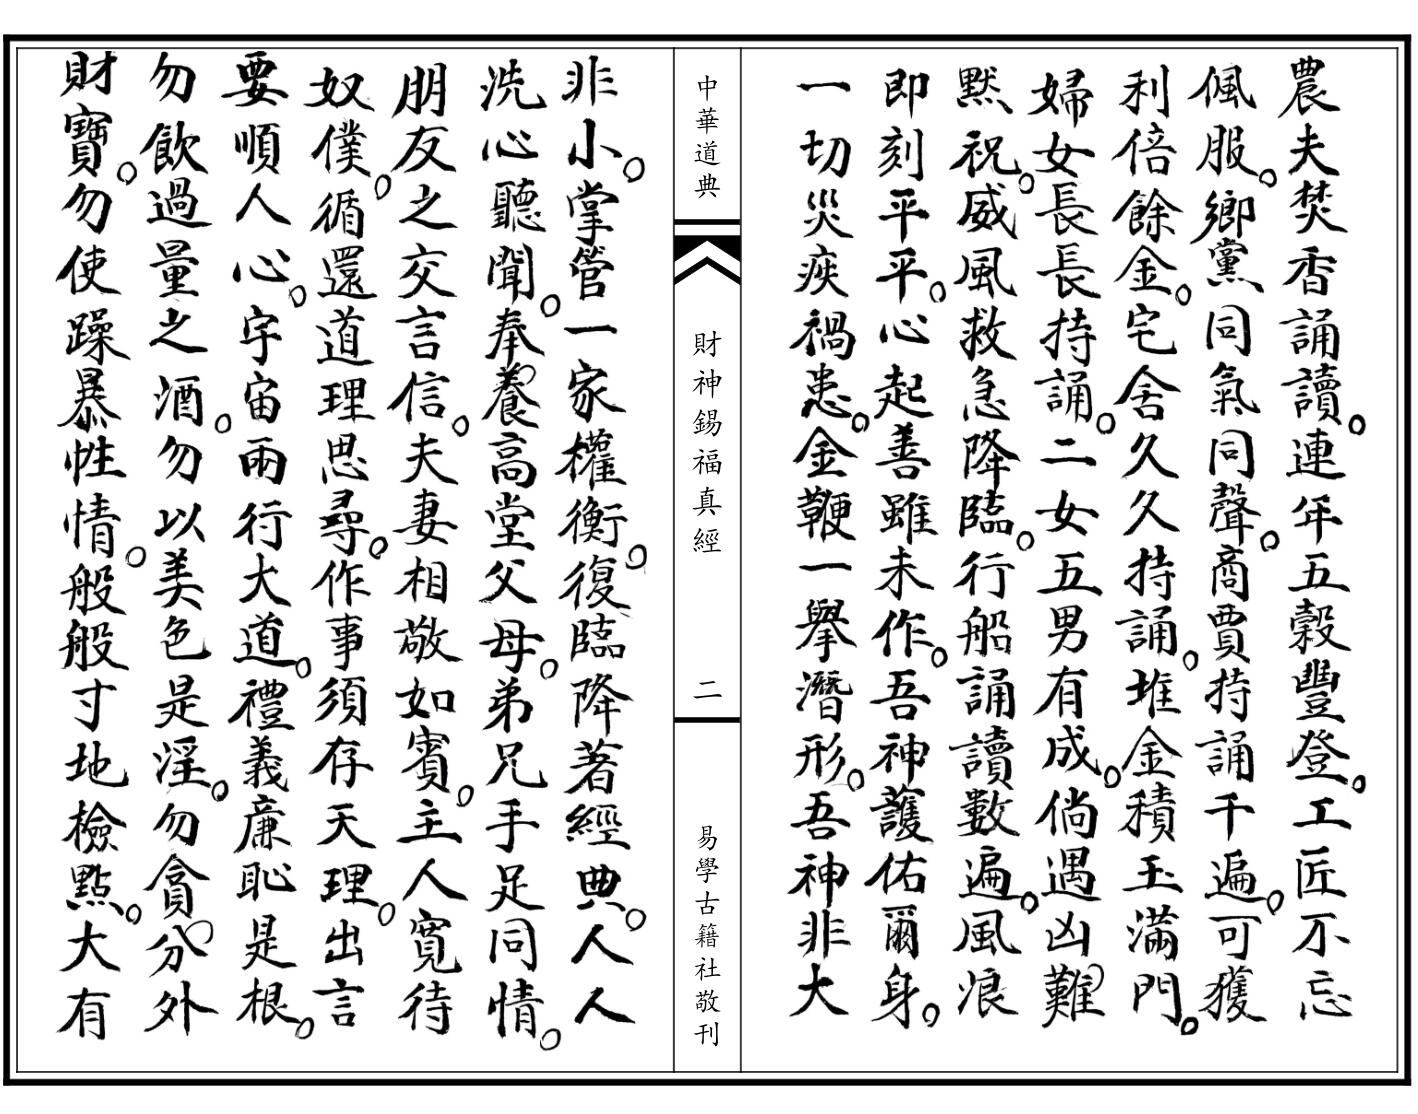 農夫焚香誦讀。連年五穀豐登。工匠不忘
佩服。鄉黨同氣同聲。商賈持誦千遍。可獲
利倍餘金。宅舍久久持誦。堆金積玉滿門。
婦女長長持誦。二女五男有成。倘遇凶難
默祝。威風救急降臨。行船誦讀數遍。風浪
即刻平平。心起善雖未作。吾神護佑爾身。
一切災疾禍患。金鞭一舉潛形。吾神非大
中華道典
財神錫福真經
二
易學古籍社敬刊
非小。掌管一家權衡。復臨降著經典。人人
洗心聽聞。奉養高堂父母。弟兄手足同情。
朋友之交言信。夫妻相敬如賓。主人寬待
奴僕。循還道理思尋。作事須存天理。出言
要順人心。宇宙兩行大道。禮義廉恥是根。
勿飲過量之酒。勿以美色是淫。勿貪分外
財寶。勿使躁暴性情。般般寸地檢點。大有